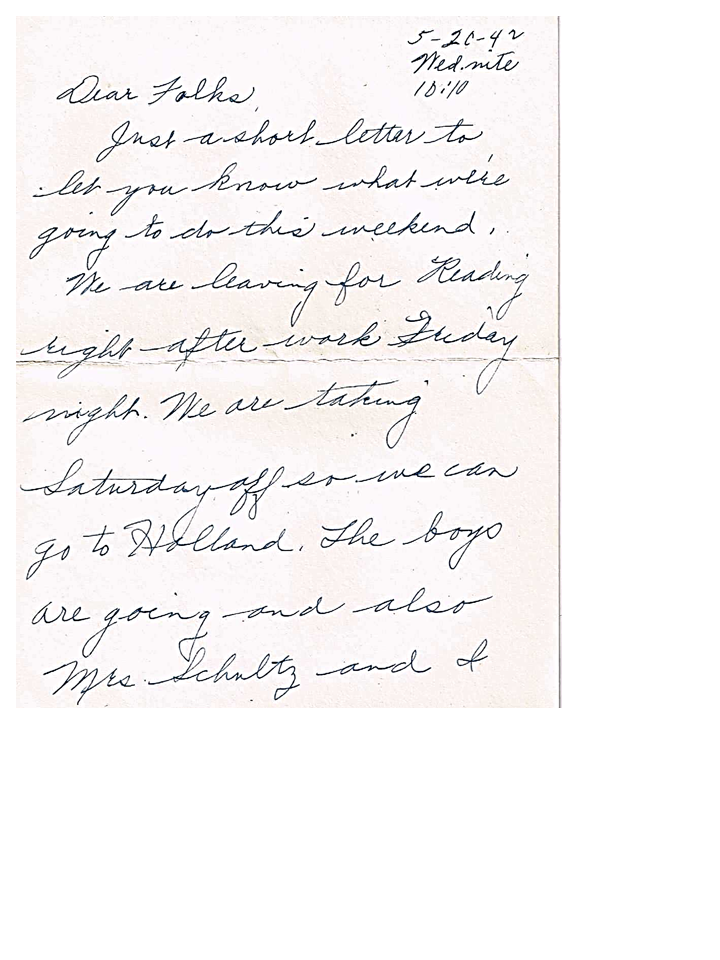 5-20-42
Wed. nite
10:10
Dear Folks,
Just a short letter to
let you know what we're
going to do this weekend.
We are leaving for Reading
right after work Friday
night. We are taking
Saturday off so we can
go to Holland. The boys
are going and also
Mrs. Schultz and I